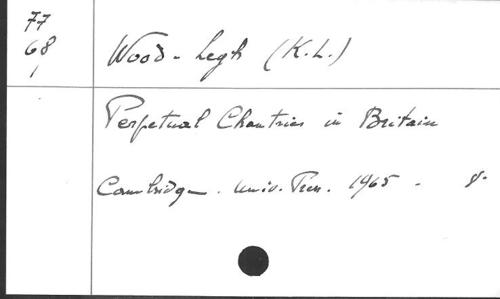 77
68
1
Wood-Legh (K.L.)
Perpetual Chantries in Britain
Cambridge. Univ. Press. 1965 - 8°